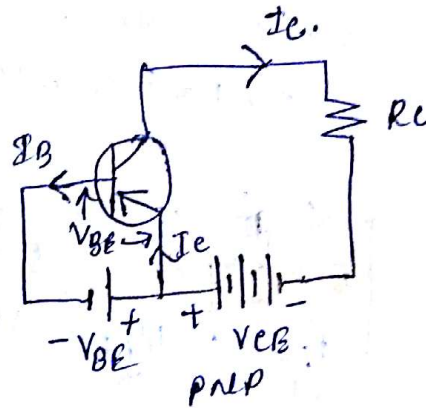 Ic.
IB
Rc
VBE
Ie
+ + -
-VBE
VCB.
PNP